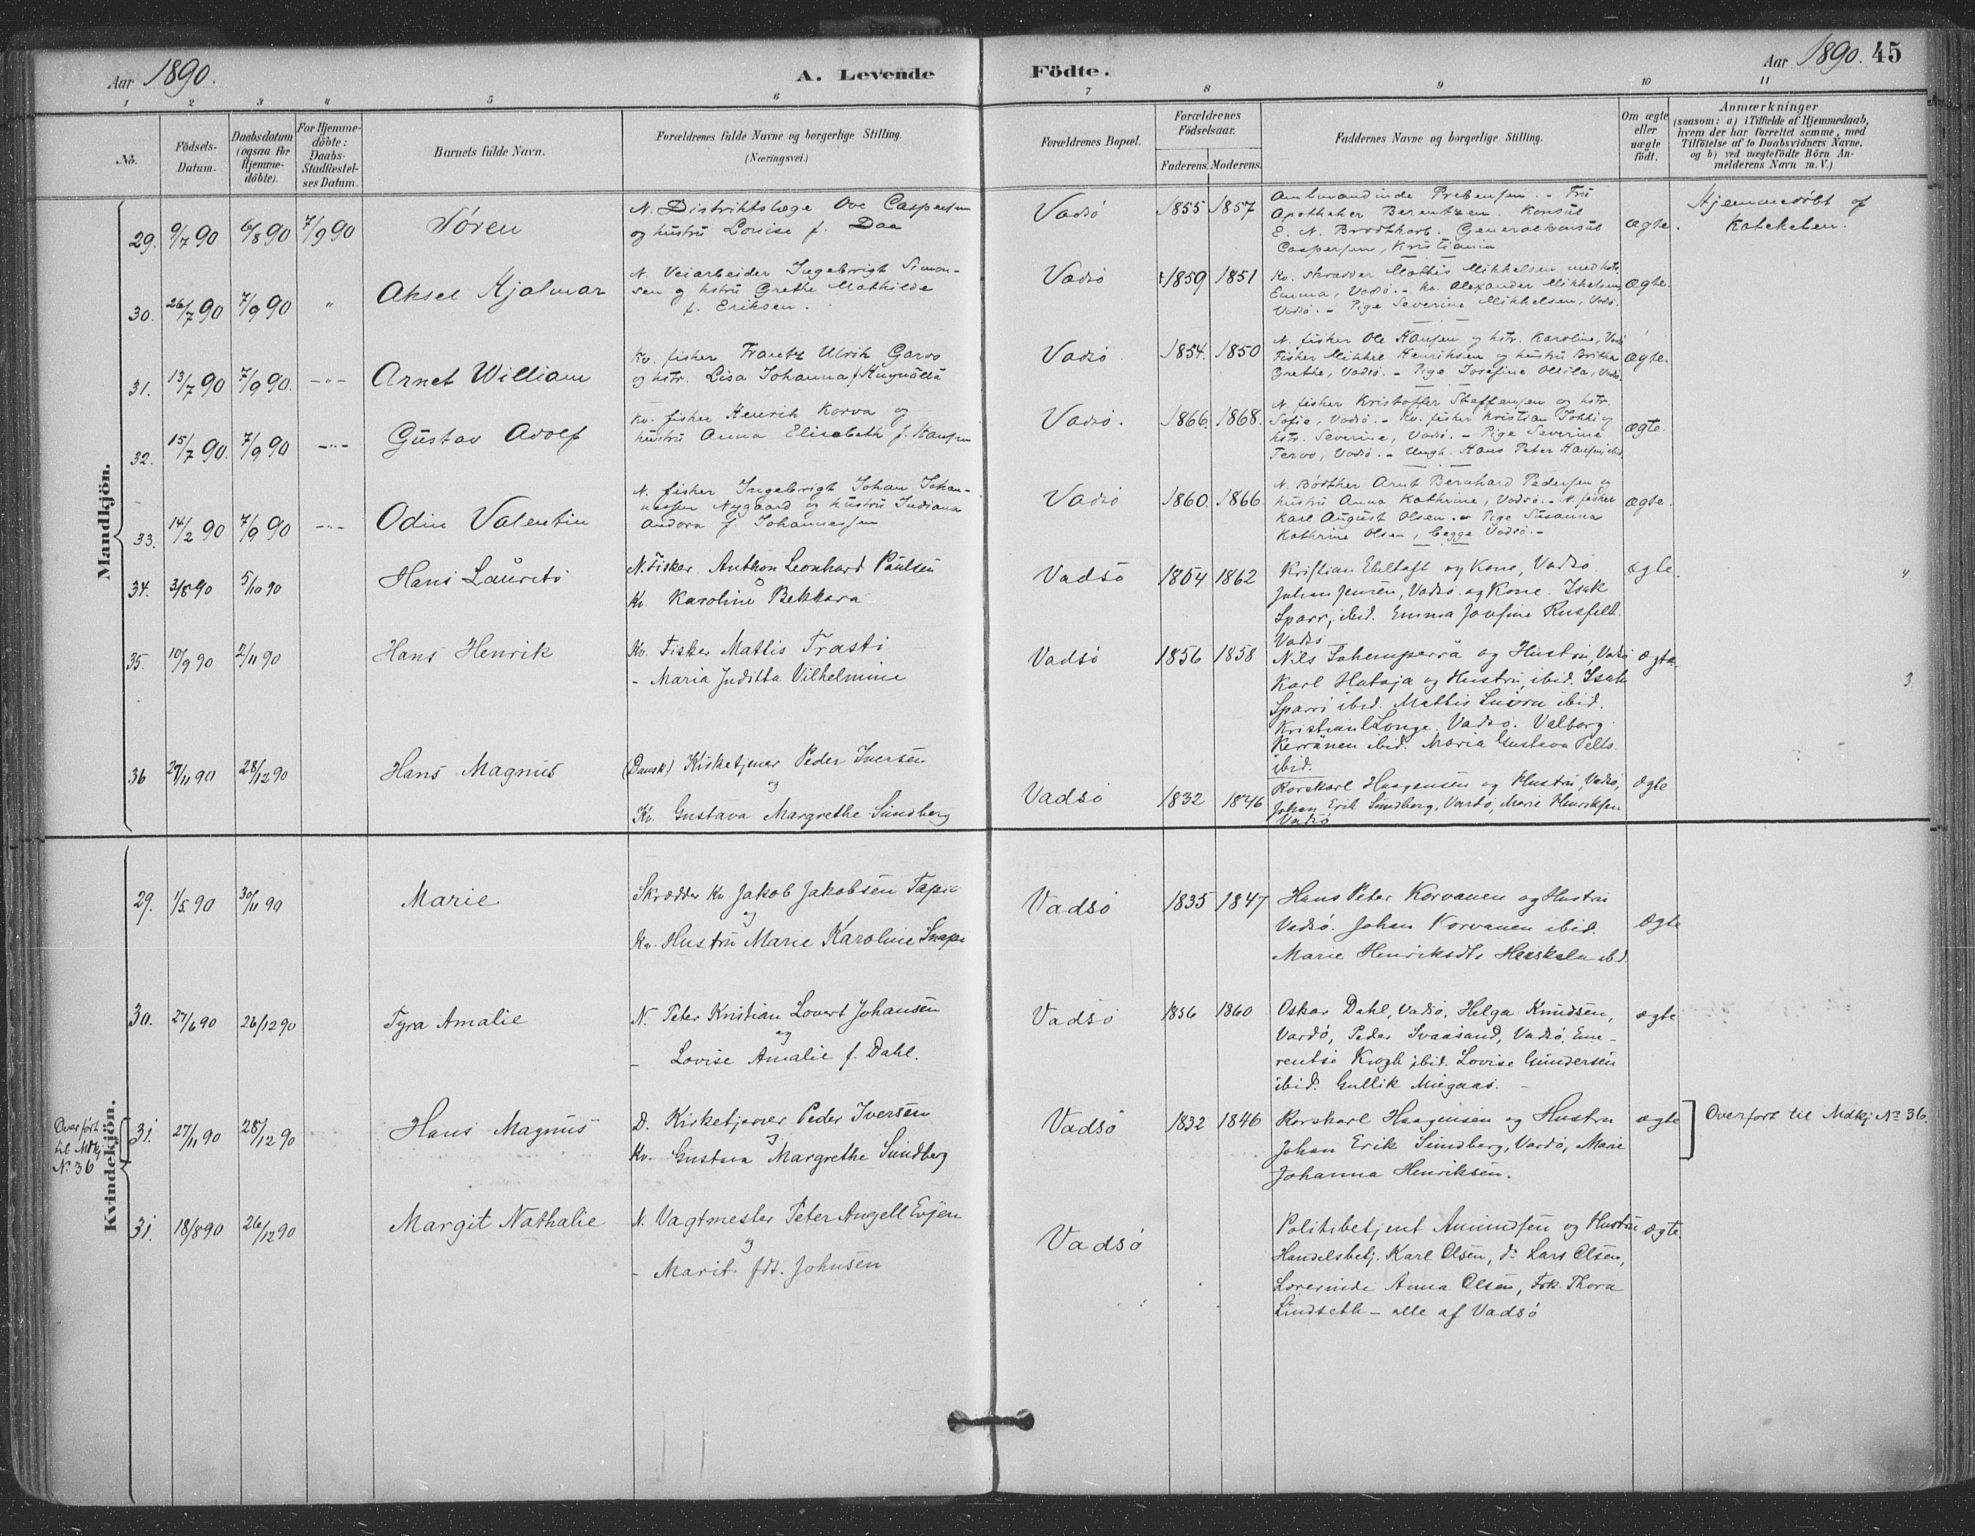 Aar 1890. A. Levende Födte. Aar 1890. 45
1 2 3 4 5 6 7 8 9 10 11
No.
Födsels-Datum.
Daabsdatum (ogsaa for Hjemme-döbte).
For Hjemme-döbte: Daabs-Stadfæstel-ses Datum.
Barnets fulde Navn.
Forældrenes fulde Navne og borgerlige Stilling.
(Næringsvei.)
Forældrenes Bopæl.
Forældrenes Födselsaar.
Faderens. Moderens.
Faddernes Navne og borgerlige Stilling.
Om ægte eller uægte födt.
Anmærkninger
(saasom: a) i Tilfælde af Hjemmedaab,
hvem der har forrettet samme, med
Tilföielse af to Daabsvidners Navne,
og b) ved uægtefödte Börn An-
melderens Navn m. V.)
Mandkjön.
29. 9/7 90 6/8 90 7/9 90 Sören
N. Distriktslæge Ove Caspersen
og hustru Louise f. Daa
Vadsö 1855 1857
Amtmandinde Prebensen. - Fru
Apotheker Berentzen. Konsul
E. N. Brodtkorb. Generalkonsul
Caspersen, Kristiania
ægte.
Hjemmedöbt af
Kateketen.
30. 26/7 90 7/9 90 " Aksel Hjalmar
N. Veiarbeider Ingebrigt Simon-
sen og hstru Grethe Mathilde
f. Eriksen.
Vadsö 1859 1851
Kv. skrædder Mattis Mikkelsen med hstr.
Emma, Vadsö. - kv. Alexander Mikkelsen,
Vadsö. - Pige Severine Mikkelsen, Vadsö.
ægte.
31. 13/7 90 7/9 90. -"- Arnet William
Kv. fisher Frantz Ulrik Garvo
og hstr. Lisa Johanna f.
Vadsö. 1854. 1850
N. fisher Ole Hansen og hstr. Karoline, Vadsö
Fisher Mikkel Henriksen og hustru Britha
Grethe, Vadsö. - Pige Josefine Ollila, Vadsö.
ægte.
32. 15/7 90. 7/9 90 -"- Gustav Adolf
Kv. fisher Henrik Korva og
hustru Anna Elisabeth f. Hansen
Vadsö. 1866. 1868.
N. fisher Kristoffer Steffensen og hstr.
Sofie, Vadsö. - Kv. fisher Kristian
hstr. Severine, Vadsö. - Pige Severine
Tervo, Vadsö. - Ungk. Hans Peter Hansen, ibid.
ægte.
33. 14/2 90 7/9 90 -"- Odin Valentin
N. fisher Ingebrigt Johan Johan-
nessen Nygaard og hustru Indiana
Andora f. Johannessen
Vadsö 1860. 1866.
N. Bödther Arnt Bernhard Pedersen og
hustru Anna Kathrine, Vadsö. - N. fisher
Karl August Olsen. - Pige Susanna
Kathrine Olsen, begge Vadsö. -
ægte.
34. 3/8 90 5/10 90 Hans Laurits
N. Fisker Anthon Leonhard Paulsen
og
Kv. Karoline Bekkara
Vadsö 1854 1862
Kristian Ebeltoft og Kone, Vadsö.
Johan Jensen, Vadsö. og Kone. Isak
Sparr, ibid. Emma Josfine Rusfelt.
Vadsö
ægte.
4
35. 10/9 90 2/11 90 Hans Henrik
Kv. Fisker Mattis Trasti
- Maria Juditta Vilhelmine
Vadsö 1856 1858
Nils og Hustru, Vadsö
Karl Hutaja og Hustru ibid. Isak
Sparri ibid. Mattis ibid.
Kristian Longe, Vadsö. Valborg
Kerränen ibid. Maria Gustava Pelto
ibid.
ægte.
3
36 27/11 90 28/12 90 Hans Magnus
(Dansk) Kirketjener Peder Iversen
og
Kv. Gustava Margrethe Sundberg
Vadsö 1832 1846
Korskarl Haagensen og Hustru, Vadsö,
Johan Erik Sundberg, Vardö, Marie Henriksen
Vadsö
ægte
Kvindekjön.
29. 1/5 90 30/11 90 Marie
Skrædder Kv Jakob Jakobsen Tapio
og
Kv. Hustru Marie Karoline
Vadsö 1835 1847
Hans Peter Korvanen og Hustru
Vadsö. Johan Korvanen ibid.
Marie Henriksdtr Heiskela ibd.
ægte
30. 27/6 90 26/12 90 Tyra Amalie
N. Peter Kristian Lovert Johansen
og
- Lovise Amalie f. Dahl.
Vadsö 1856 1860
Oskar Dahl, Vadsö, Helga Knudsen,
Vardö, Peder Svaasand, Vadsö, Eme-
rentse Krogh ibid. Lovise Gundersen
ibid. Gullik Miegaas. -
ægte
Overfört
til Mdkj
No. 36
31. 27/11 90 28/12 90 Hans Magnus
D. Kirketjener Peder Iversen
og
Kv. Gustava Margrethe Sundberg
Vadsö 1832 1846
Korskarl Haagensen og Hustru
Johan Erik Sundberg, Vardö, Marie
Johanna Henriksen.
ægte
Overfört til Mdkj No 36.
31. 18/8 90 26/12 90 Margit Nathalie
N. Vagtmester Peter Angell Evjen
og
- Marit. fdt. Johnsen
Vadsö
Politibetjent Amundsen og Hustru
Handelsbetj. Karl Olsen, do Lars Olsen,
Lærerinde Anna Olsen, Frk. Thora
Lindseth - alle af Vadsö
ægte.